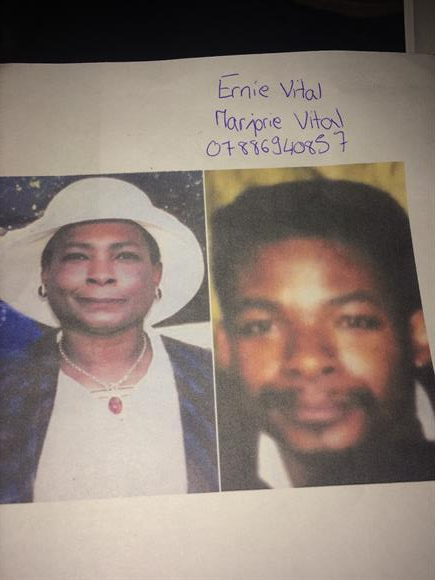 Ernie Vital
Marjorie Vital
07886940857